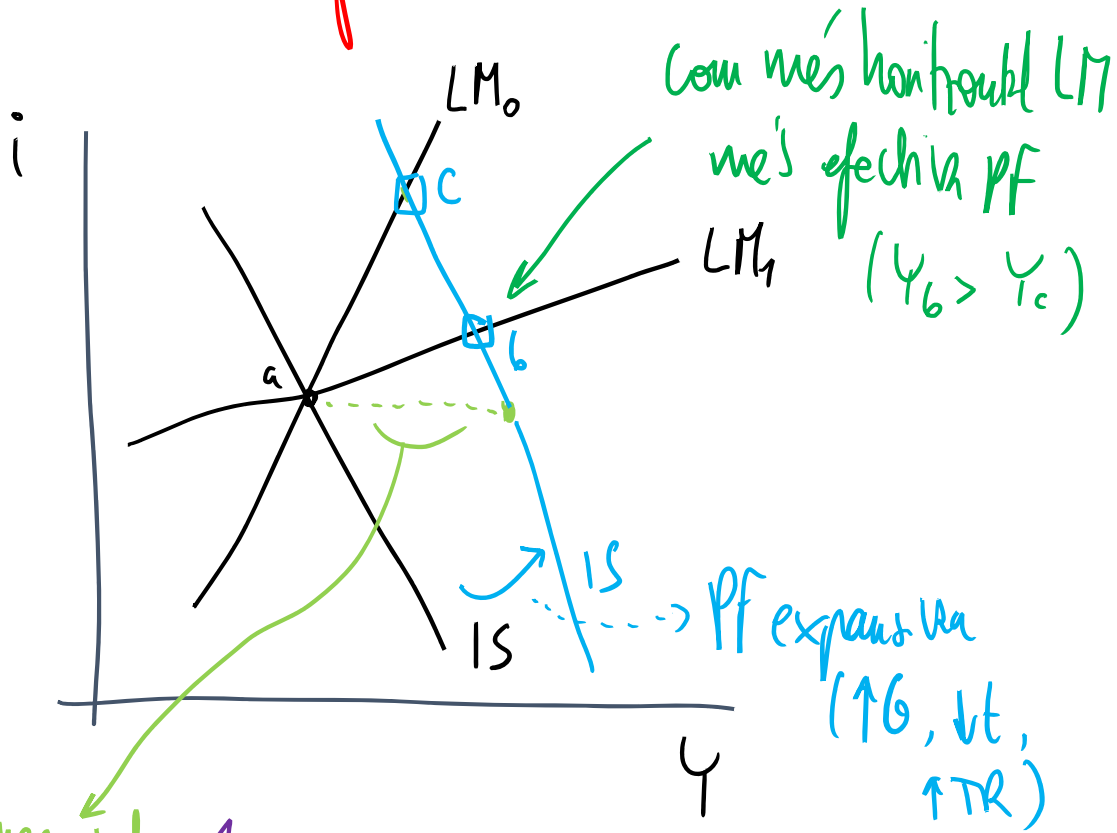 i
LM₀
com més horitzontal LM
més efectiva PF
(Y_b > Y_c)
c
LM₁
b
a
IS
IS
PF expansiva
(↑G, ↓t,
↑TR)
Y